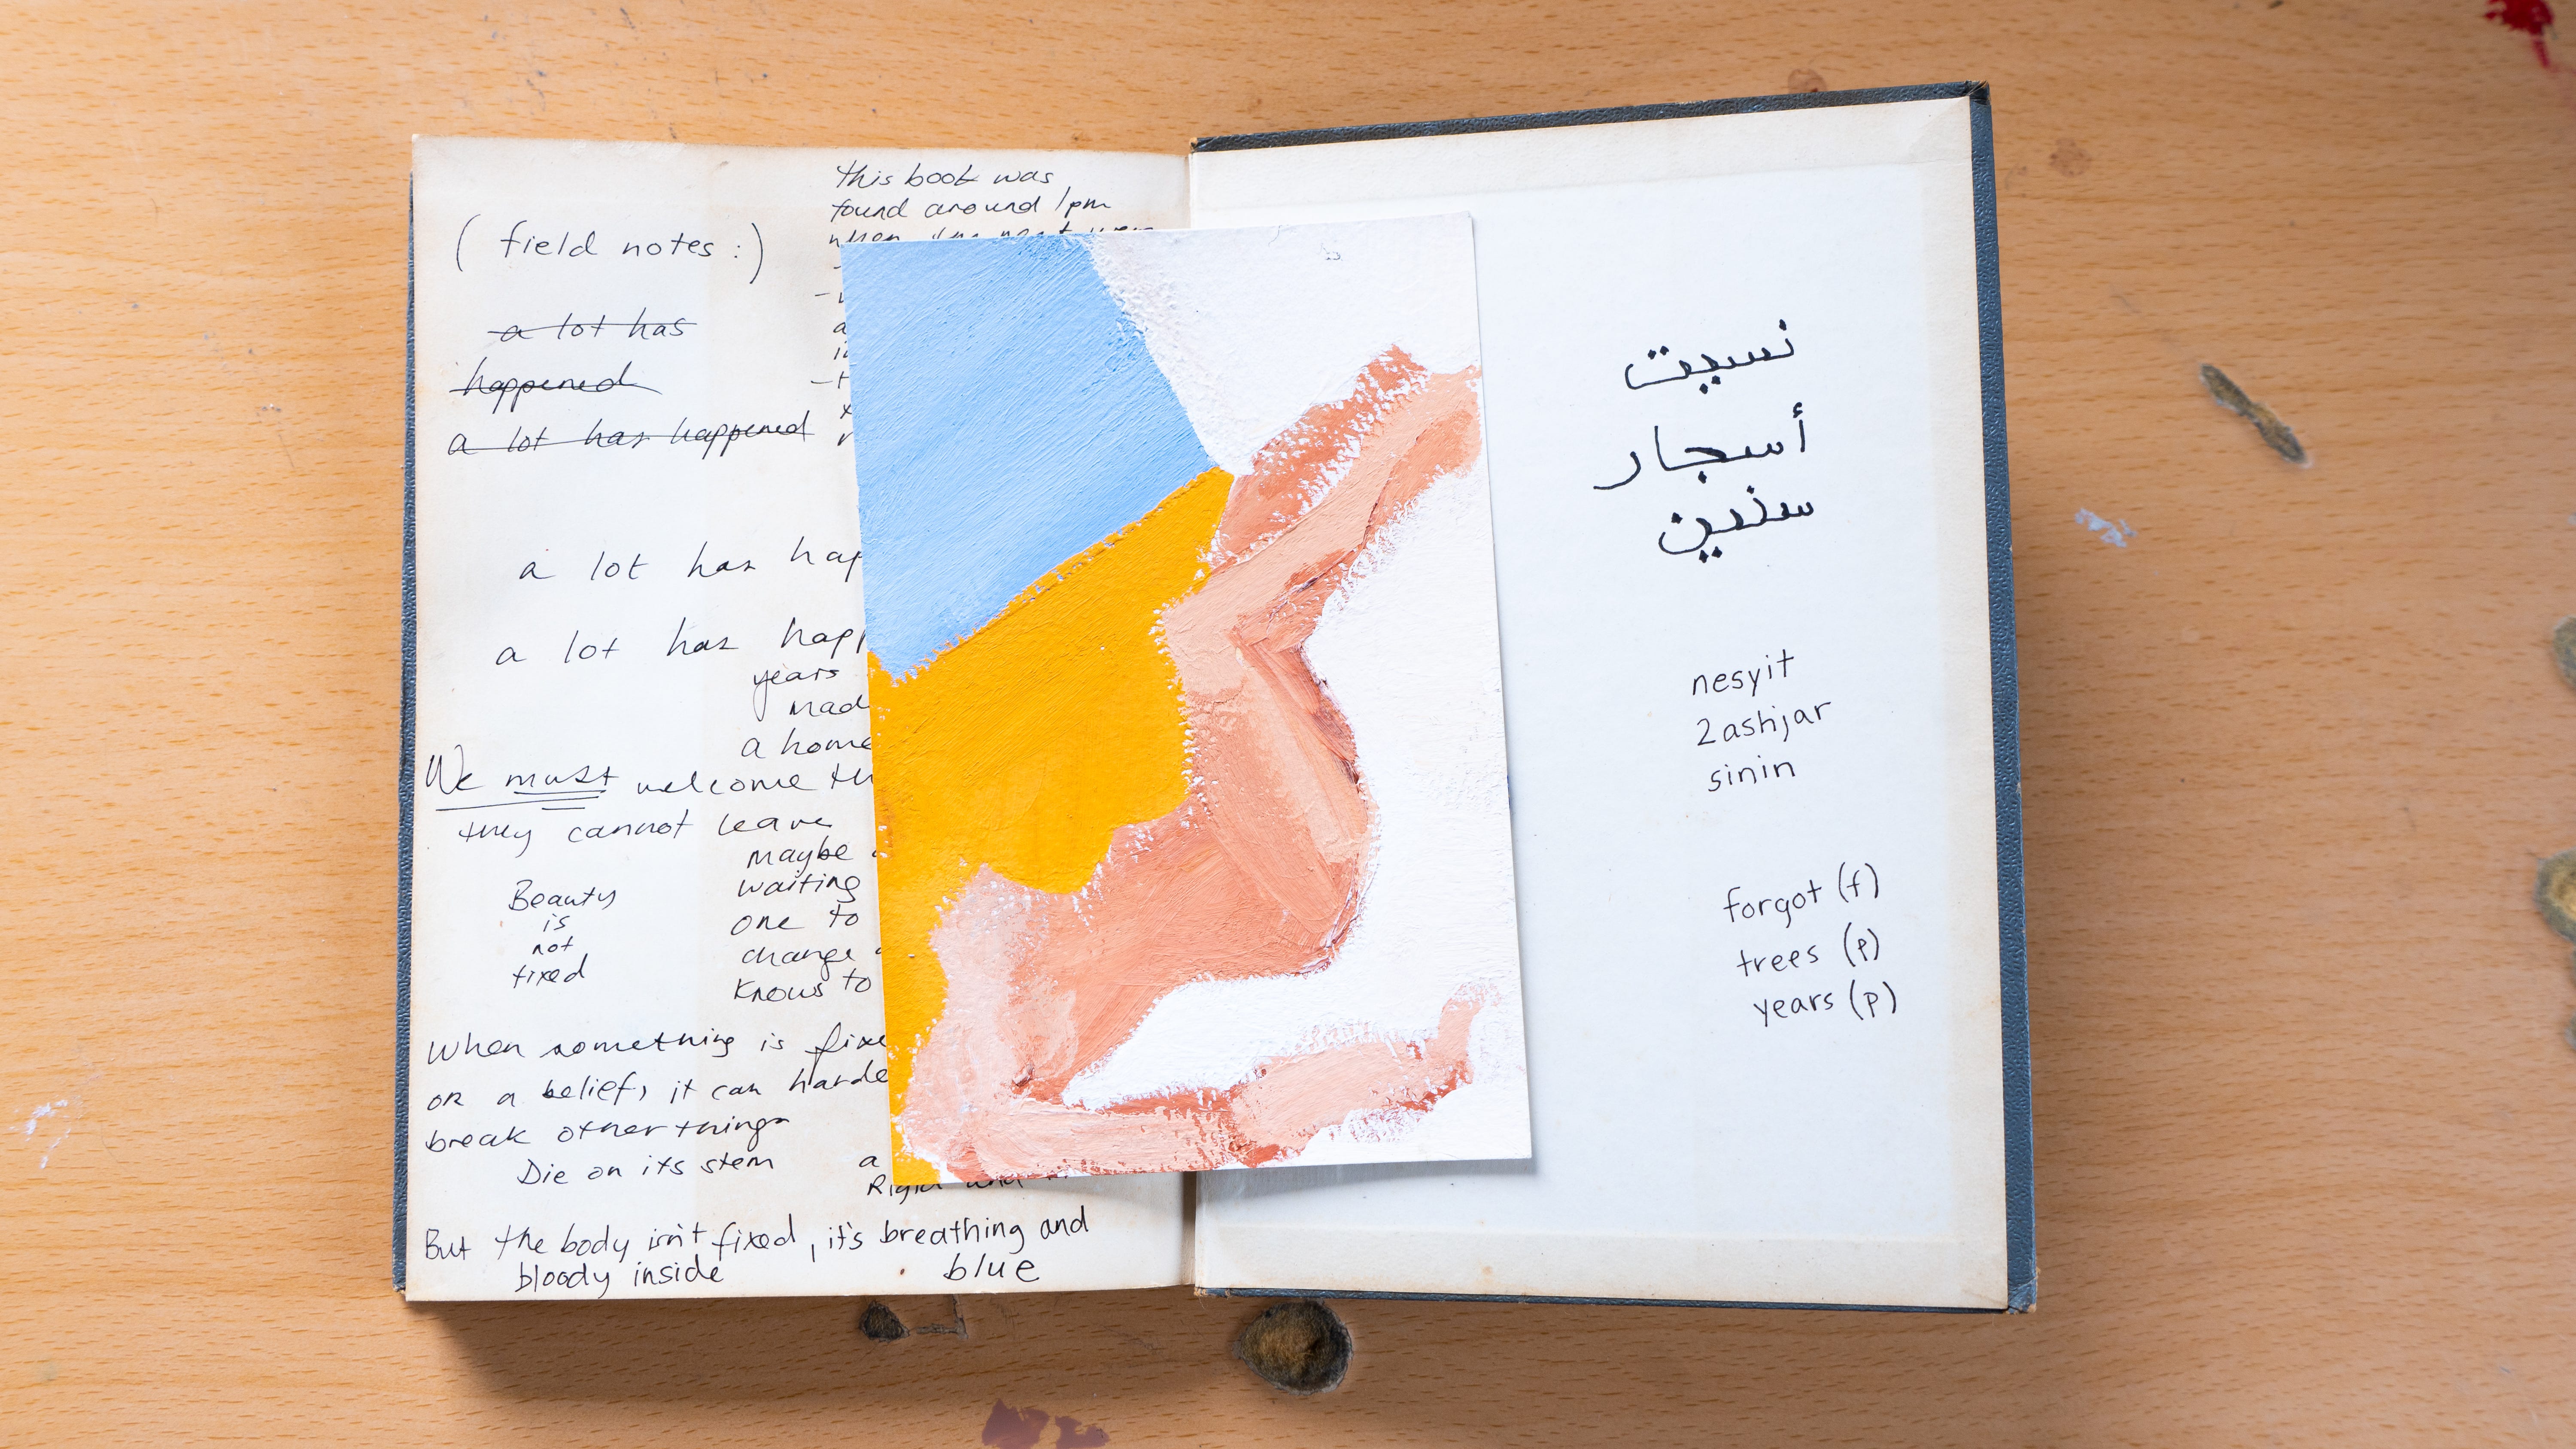 this book was
found around 1pm
when
(field notes:)
a lot has
happened
a lot has happened
a lot has hap
a lot has happ
years
mad
a home
We must welcome th
they cannot leave
maybe
waiting
one to
change
knows to
Beauty
is
not
fixed
When something is fixe
or a belief, it can harde
break other things
Die on its stem
a
Rigid and
But the body isn't fixed, it's breathing and
bloody inside
blue
نسيت
أسجار
سنين
nesyit
2ashjar
sinin
forgot (f)
trees (p)
years (p)